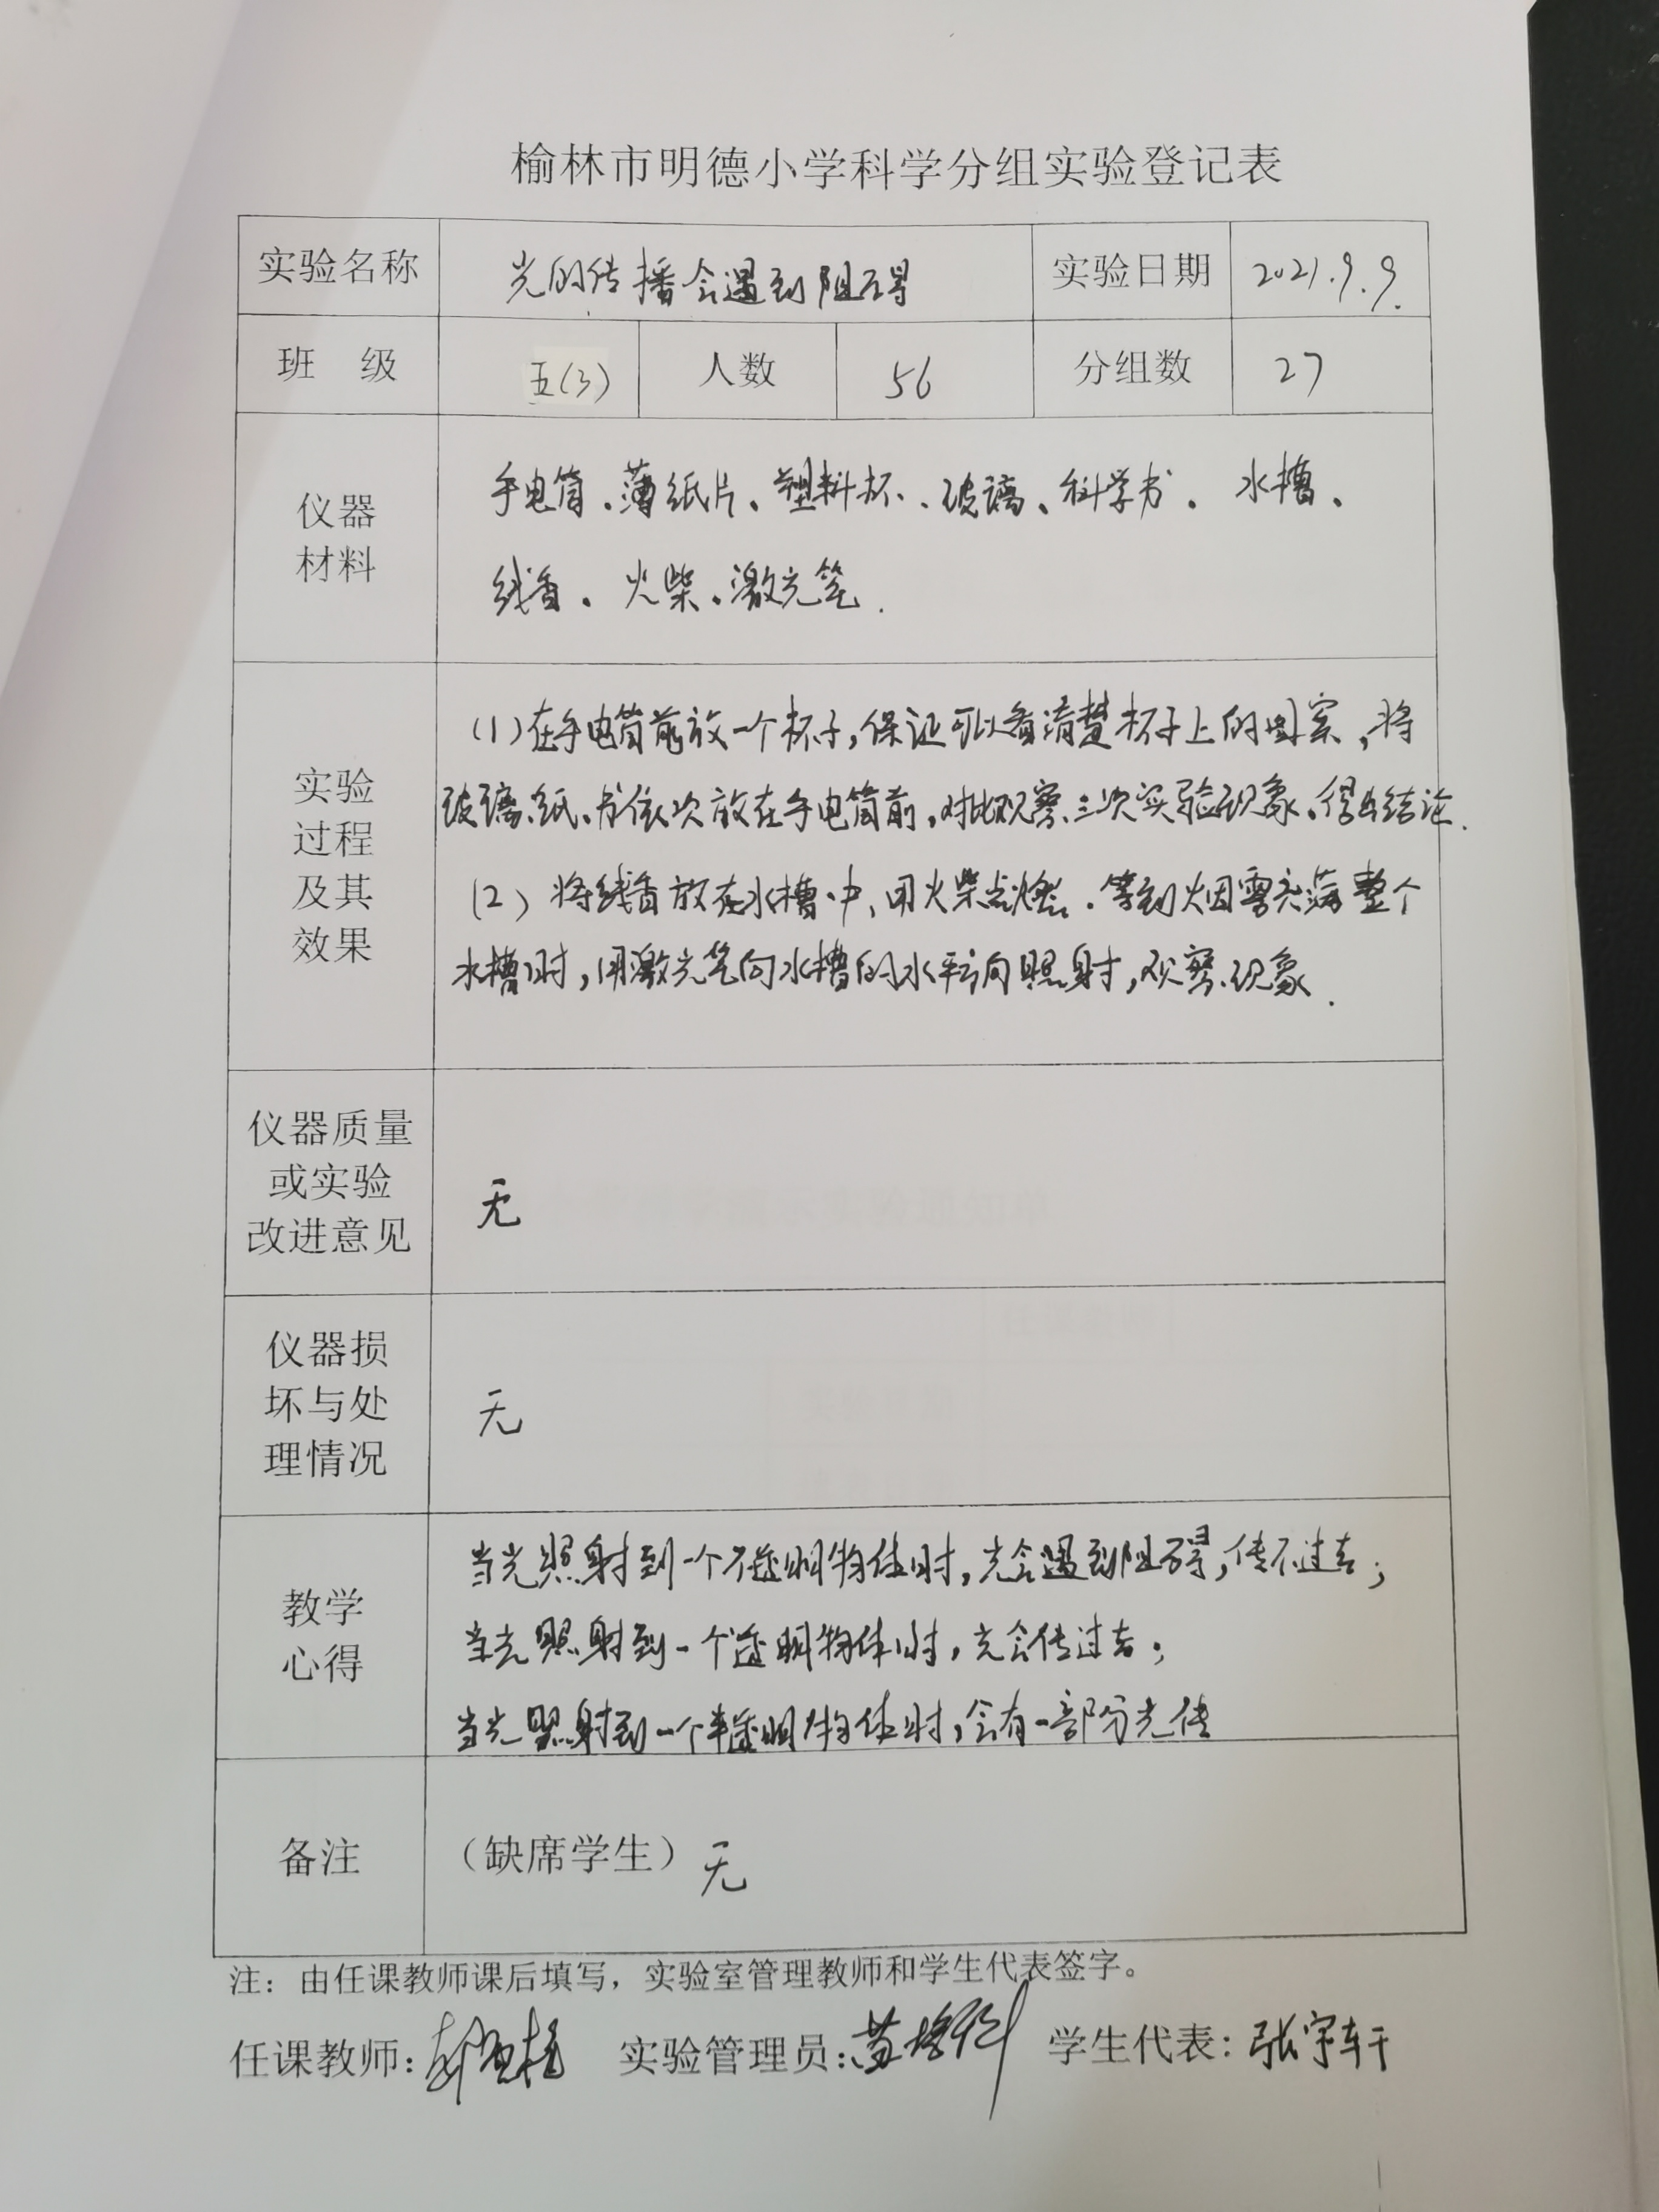 榆林市明德小学科学分组实验登记表
实验名称 光的传播会遇到阻碍 实验日期 2021.9.9.
班 级 五(3) 人数 56 分组数 27
仪器
材料
手电筒、薄纸片、塑料杯、玻璃、科学书、水槽、
线香、火柴、激光笔.
实验
过程
及其
效果
(1)在手电筒前放一个杯子,保证可以看清楚杯子上的图案,将
玻璃、纸、书依次放在手电筒前,对比观察三次实验现象,得出结论.
(2) 将线香放在水槽中,用火柴点燃.等到烟雾充满整个
水槽时,用激光笔向水槽的水平方向照射,观察现象.
仪器质量
或实验
改进意见
无
仪器损
坏与处
理情况
无
教学
心得
当光照射到一个不透明物体时,光会遇到阻碍,传不过去;
当光照射到一个透明物体时,光会传过去;
当光照射到一个半透明物体时,会有一部分光传
备注
(缺席学生)无
注：由任课教师课后填写，实验室管理教师和学生代表签字。
任课教师： 实验管理员： 学生代表：张宇轩